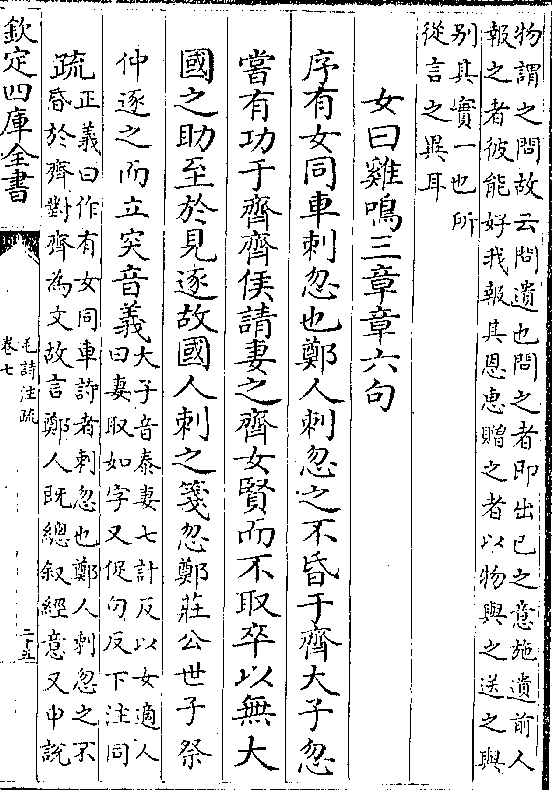 物謂之問故云問遺也問之者即出已之意施遺前人
報之者彼能好我報其恩惠贈之者以物與之送之與
別其實一也所
從言之異耳
女曰雞鳴三章章六句
序有女同車刺忽也鄭人刺忽之不昏于齊大子忽
嘗有功于齊齊侯請妻之齊女賢而不取卒以無大
國之助至於見逐故國人刺之箋忽鄭莊公世子祭
仲逐之而立突音義大子音泰妻七計反以女適人
曰妻取如字又促句反下注同
疏正義曰作有女同車詩者刺忽也鄭人刺忽之不
昏於齊對齊為文故言鄭人既總叙經意又申說
欽定四庫全書
毛詩注疏
卷七
二十五